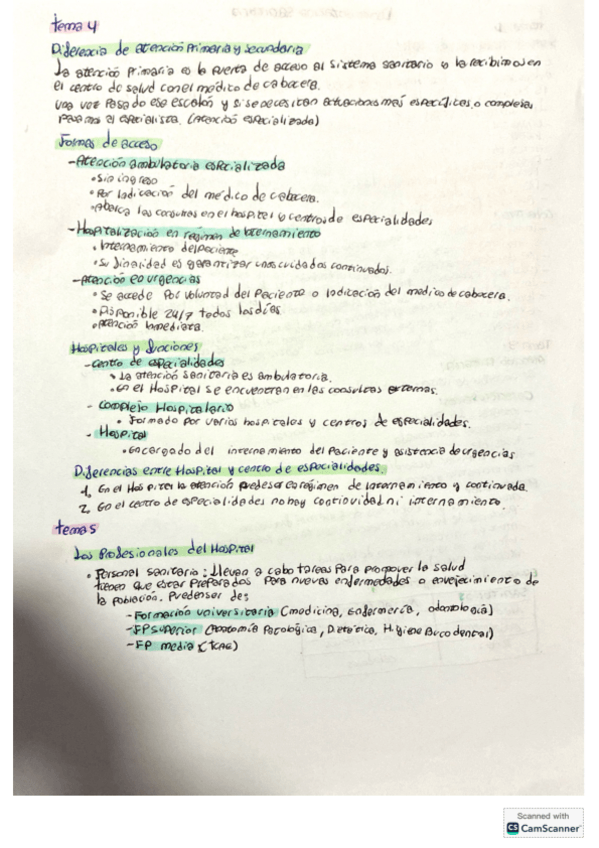 tema 4
Diferencia de atención Primaria y secundaria
La atención primaria es la puerta de acceso al sistema sanitario y la recibimos en
el centro de salud con el médico de cabecera.
una vez pasado ese escalón y si se necesitan actuaciones más específicas o complejas
pasamos al especialista. (Atención especializada)
Formas de acceso
-Atención ambulatoria especializada
• Sin ingreso
• Por indicación del médico de cabecera.
• Abarca las consultas en el hospital o centros de especialidades
-Hospitalización en régimen de internamiento
• Internamiento del paciente
• Su finalidad es garantizar unos cuidados continuados.
-Atención en urgencias
• Se accede por voluntad del paciente o indicación del medico de cabecera.
• Disponible 24/7 todos los días
• Atención inmediata.
Hospitales y funciones
-Centro de especialidades
• La atención sanitaria es ambulatoria.
• En el Hospital se encuentran en las consultas externas.
- Complejo Hospitalario
• Formado por varios hospitales y centros de especialidades.
- Hospital
• Encargado del internamiento del paciente y asistencia de urgencias
Diferencias entre Hospital y centro de especialidades.
1. En el Hospital la atención puede ser en régimen de internamiento y continuada
2. En el centro de especialidades no hay continuidad ni internamiento.
tema 5
Los Profesionales del Hospital
• Personal sanitario: Llevan a cabo tareas para promover la salud
tienen que estar preparados para nuevas enfermedades o envejecimiento de
la población. Pueden ser de:
-Formación universitaria (medicina, Enfermería, odontología)
-FP superior (Anatomía Patológica, Dietética, Higiene Bucodental)
-FP media (TCAE)
Scanned with
CS CamScanner